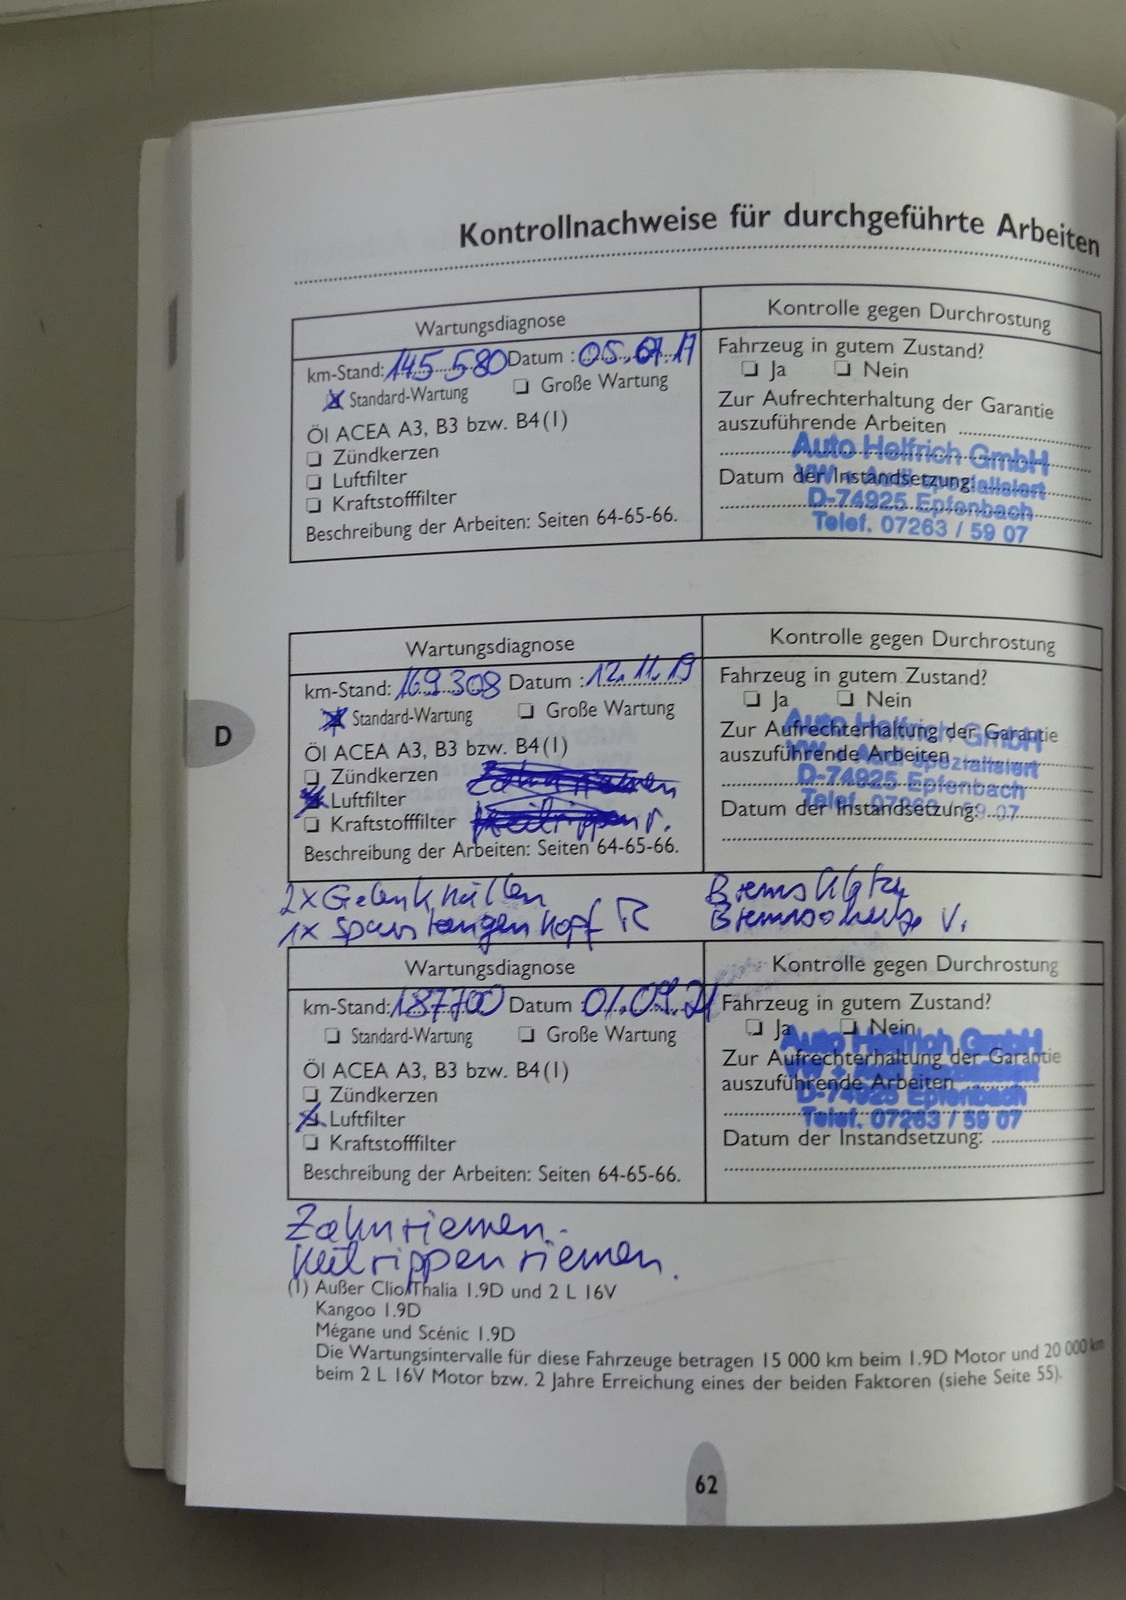 Kontrollnachweise für durchgeführte Arbeiten
Wartungsdiagnose
km-Stand: 145 580 Datum : 05.07.17
Standard-Wartung Große Wartung
Öl ACEA A3, B3 bzw. B4(1)
Zündkerzen
Luftfilter
Kraftstofffilter
Beschreibung der Arbeiten: Seiten 64-65-66.
Kontrolle gegen Durchrostung
Fahrzeug in gutem Zustand?
Ja Nein
Zur Aufrechterhaltung der Garantie
auszuführende Arbeiten
Auto Helfrich GmbH
Datum der Instandsetzung:
VW + Audi spezialisiert
D-74925 Epfenbach
Telef. 07263 / 59 07
Wartungsdiagnose
km-Stand: 169 308 Datum : 12.11.19
Standard-Wartung Große Wartung
Öl ACEA A3, B3 bzw. B4(1)
Zündkerzen Zahnriemen
Luftfilter
Kraftstofffilter Keilrippenr.
Beschreibung der Arbeiten: Seiten 64-65-66.
Kontrolle gegen Durchrostung
Fahrzeug in gutem Zustand?
Ja Nein
Zur Aufrechterhaltung der Garantie
Auto Helfrich GmbH
auszuführende Arbeiten
VW + Audi spezialisiert
D-74925 Epfenbach
Datum der Instandsetzung:
Telef. 07263 / 59 07
D
2x Gelenkhüllen
1x Spurstangenkopf R
Bremsklötze
Bremsscheibe V.
Wartungsdiagnose
km-Stand: 187700 Datum : 01.09.21
Standard-Wartung Große Wartung
Öl ACEA A3, B3 bzw. B4(1)
Zündkerzen
Luftfilter
Kraftstofffilter
Beschreibung der Arbeiten: Seiten 64-65-66.
Kontrolle gegen Durchrostung
Fahrzeug in gutem Zustand?
Ja Nein
Auto Helfrich GmbH
Zur Aufrechterhaltung der Garantie
auszuführende Arbeiten
D-74925 Epfenbach
Telef. 07263 / 59 07
Datum der Instandsetzung:
Zahnriemen.
Keilrippenriemen.
(1) Außer Clio/Thalia 1.9D und 2 L 16V
Kangoo 1.9D
Mégane und Scénic 1.9D
Die Wartungsintervalle für diese Fahrzeuge betragen 15 000 km beim 1.9D Motor und 20 000 km
beim 2 L 16V Motor bzw. 2 Jahre Erreichung eines der beiden Faktoren (siehe Seite 55).
62